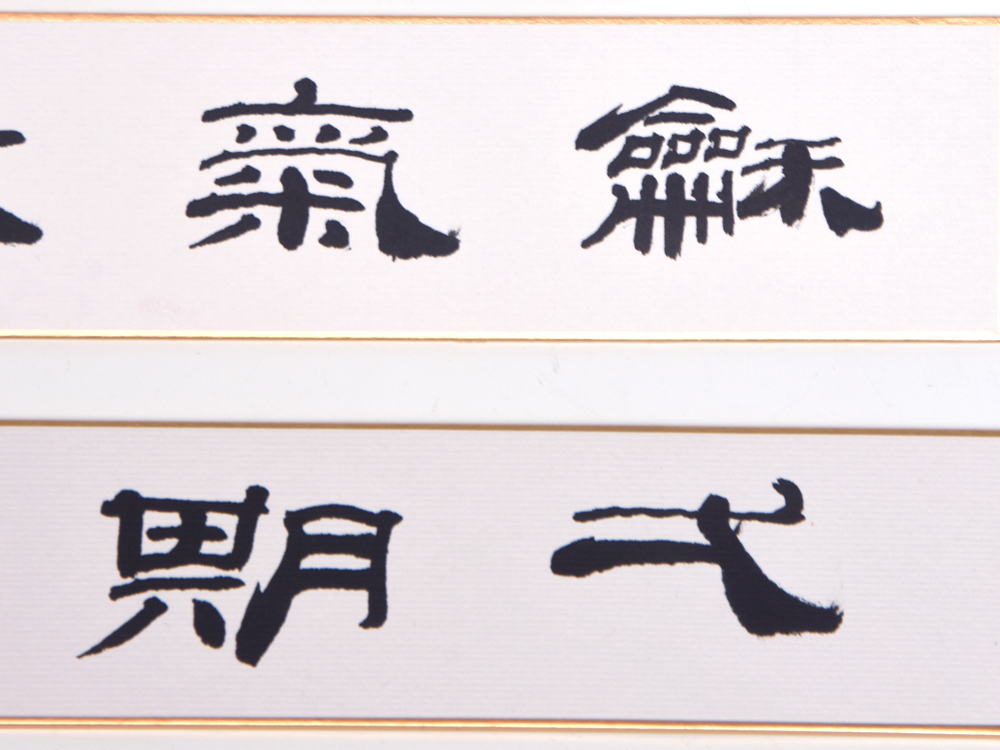 龢氣
弌期